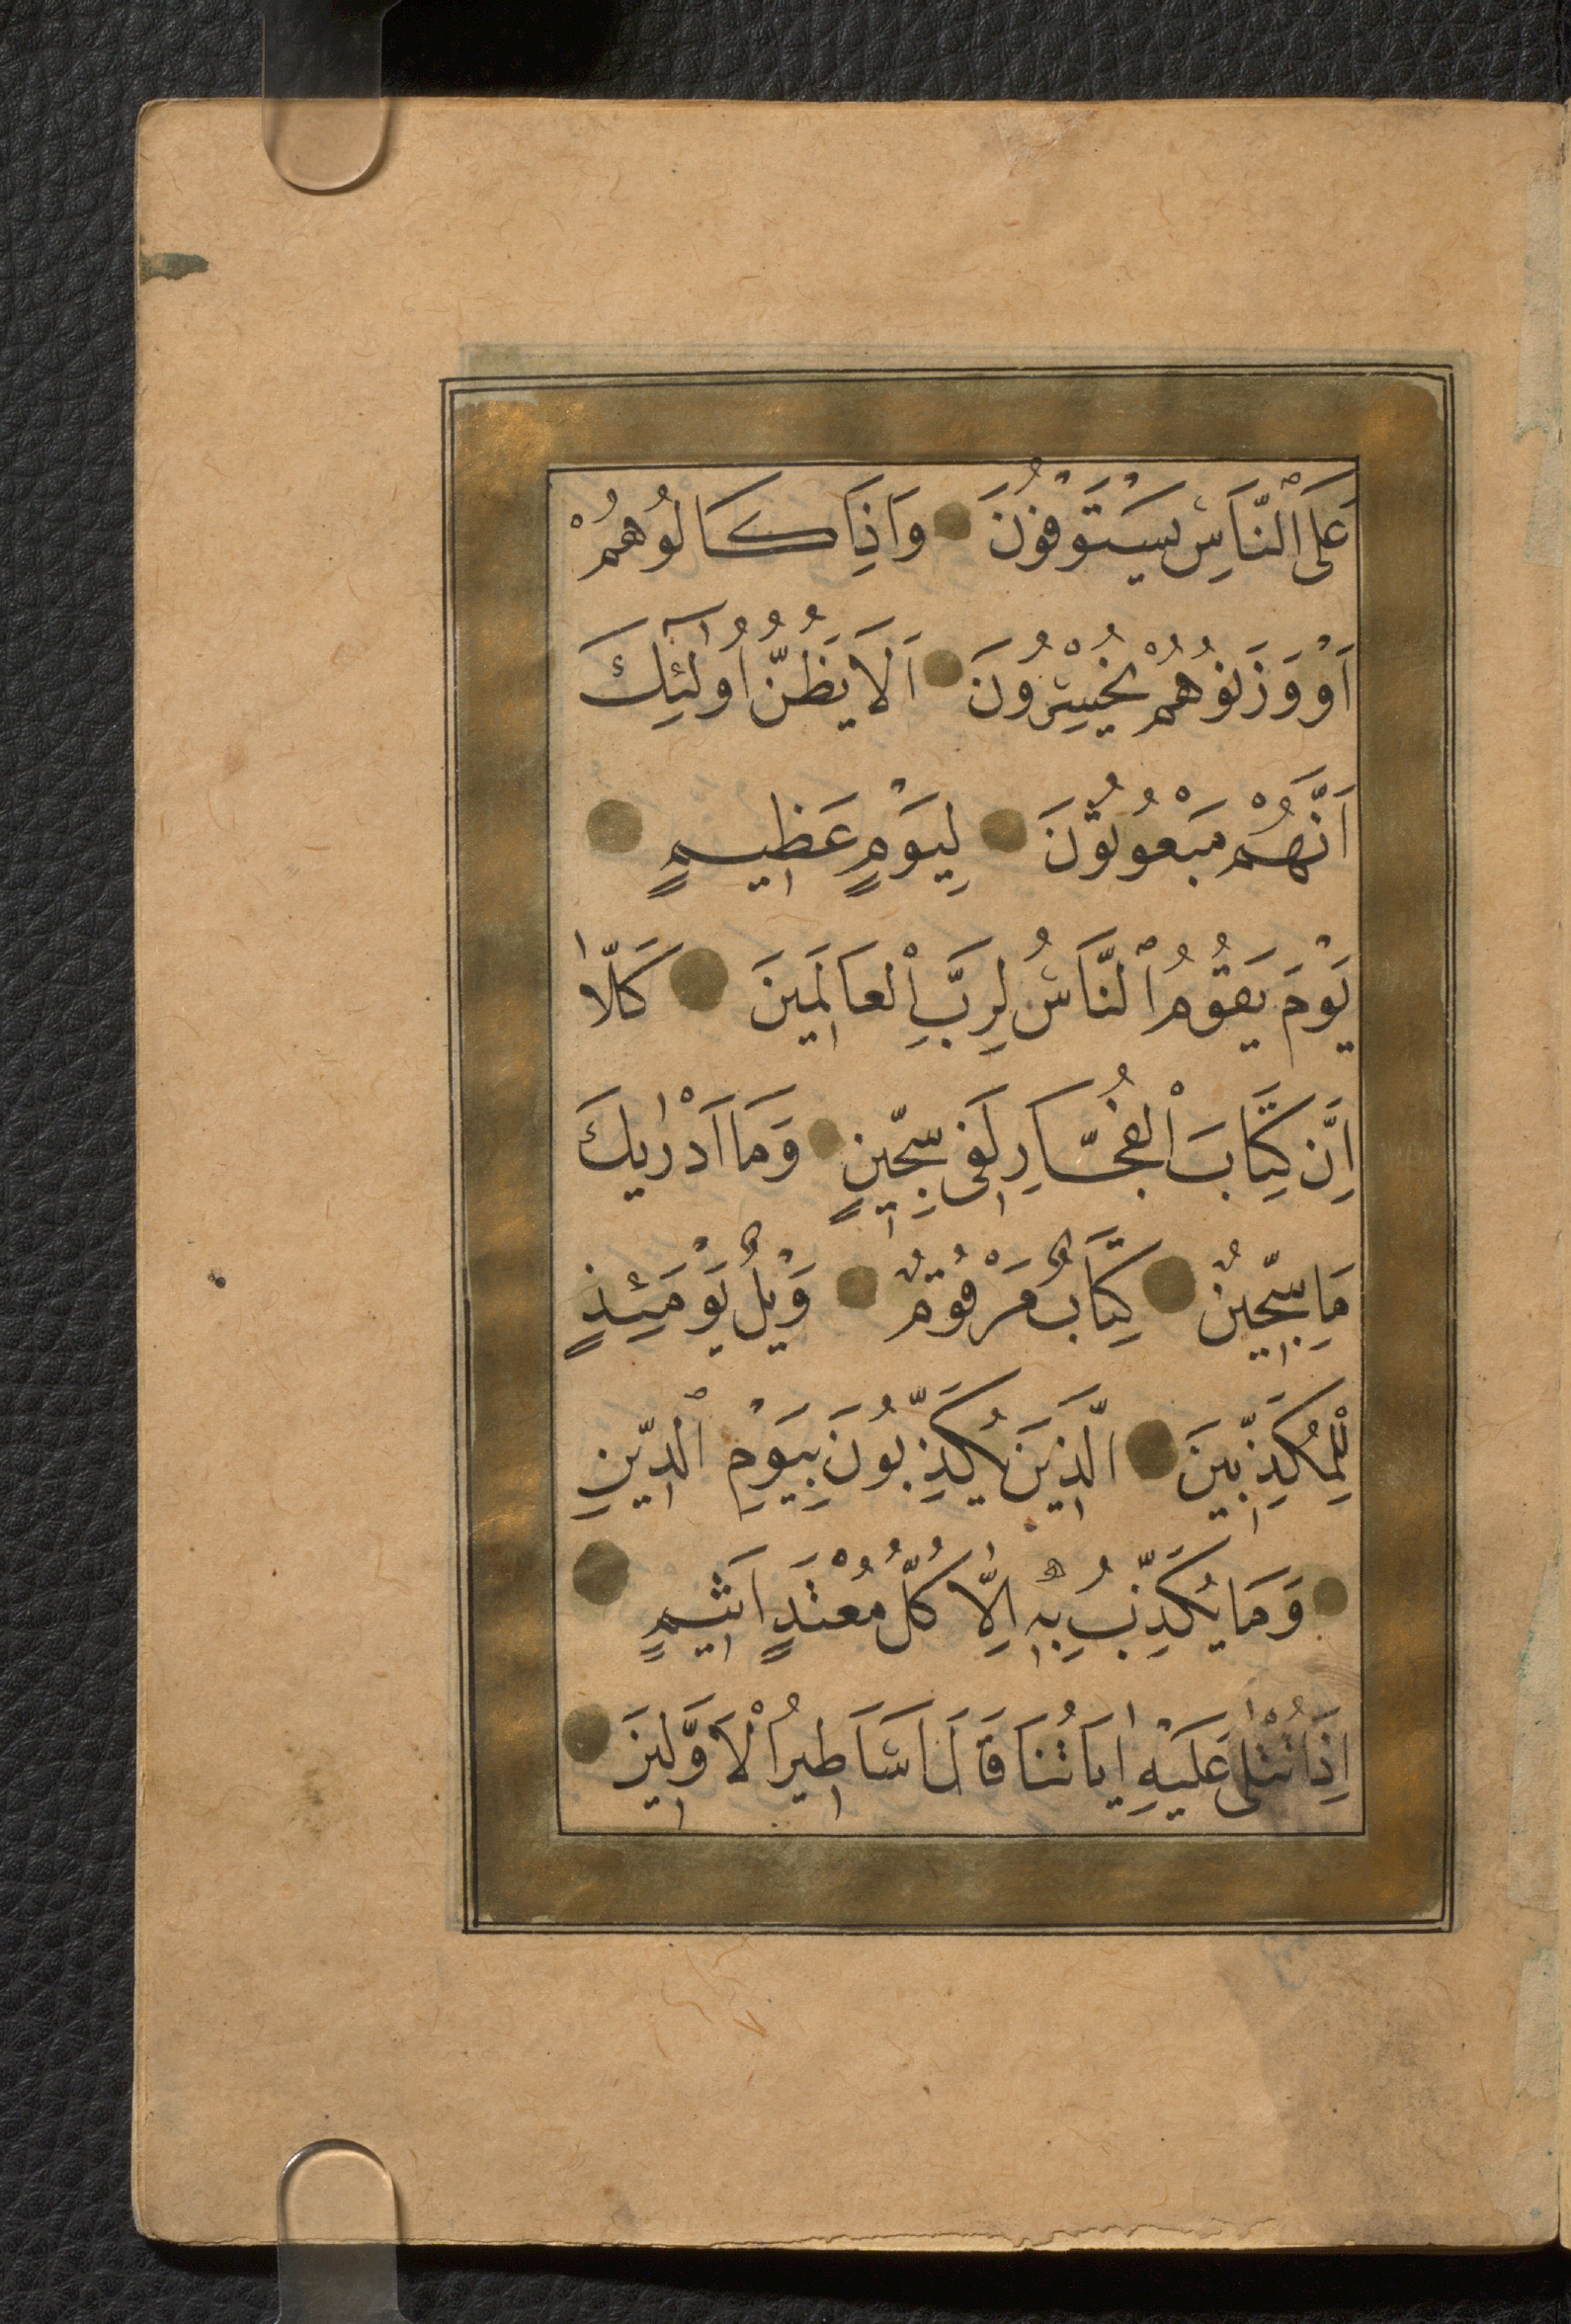 عَلَى ٱلنَّاسِ يَسْتَوْفُونَ وَاِذَا كَالُوهُمْ
اَوْ وَزَنُوهُمْ يُخْسِرُونَ اَلَا يَظُنُّ اُولٰٓئِكَ
اَنَّهُمْ مَبْعُوثُونَ لِيَوْمٍ عَظِيمٍ
يَوْمَ يَقُومُ ٱلنَّاسُ لِرَبِّ اْلعَالَمِينَ كَلَّا
اِنَّ كِتَابَ اْلفُجَّارِ لَفِى سِجِّينٍ وَمَا اَدْرٰيكَ
مَا سِجِّينٌ كِتَابٌ مَرْقُومٌ وَيْلٌ يَوْمَئِذٍ
لِلْمُكَذِّبِينَ الَّذِينَ يُكَذِّبُونَ بِيَوْمِ ٱلدِّينِ
وَمَا يُكَذِّبُ بِهِ اِلَّا كُلُّ مُعْتَدٍ اَثِيمٍ
اِذَا تُتْلٰى عَلَيْهِ اٰيَاتُنَا قَالَ اَسَاطِيرُ اْلاَوَّلِينَ